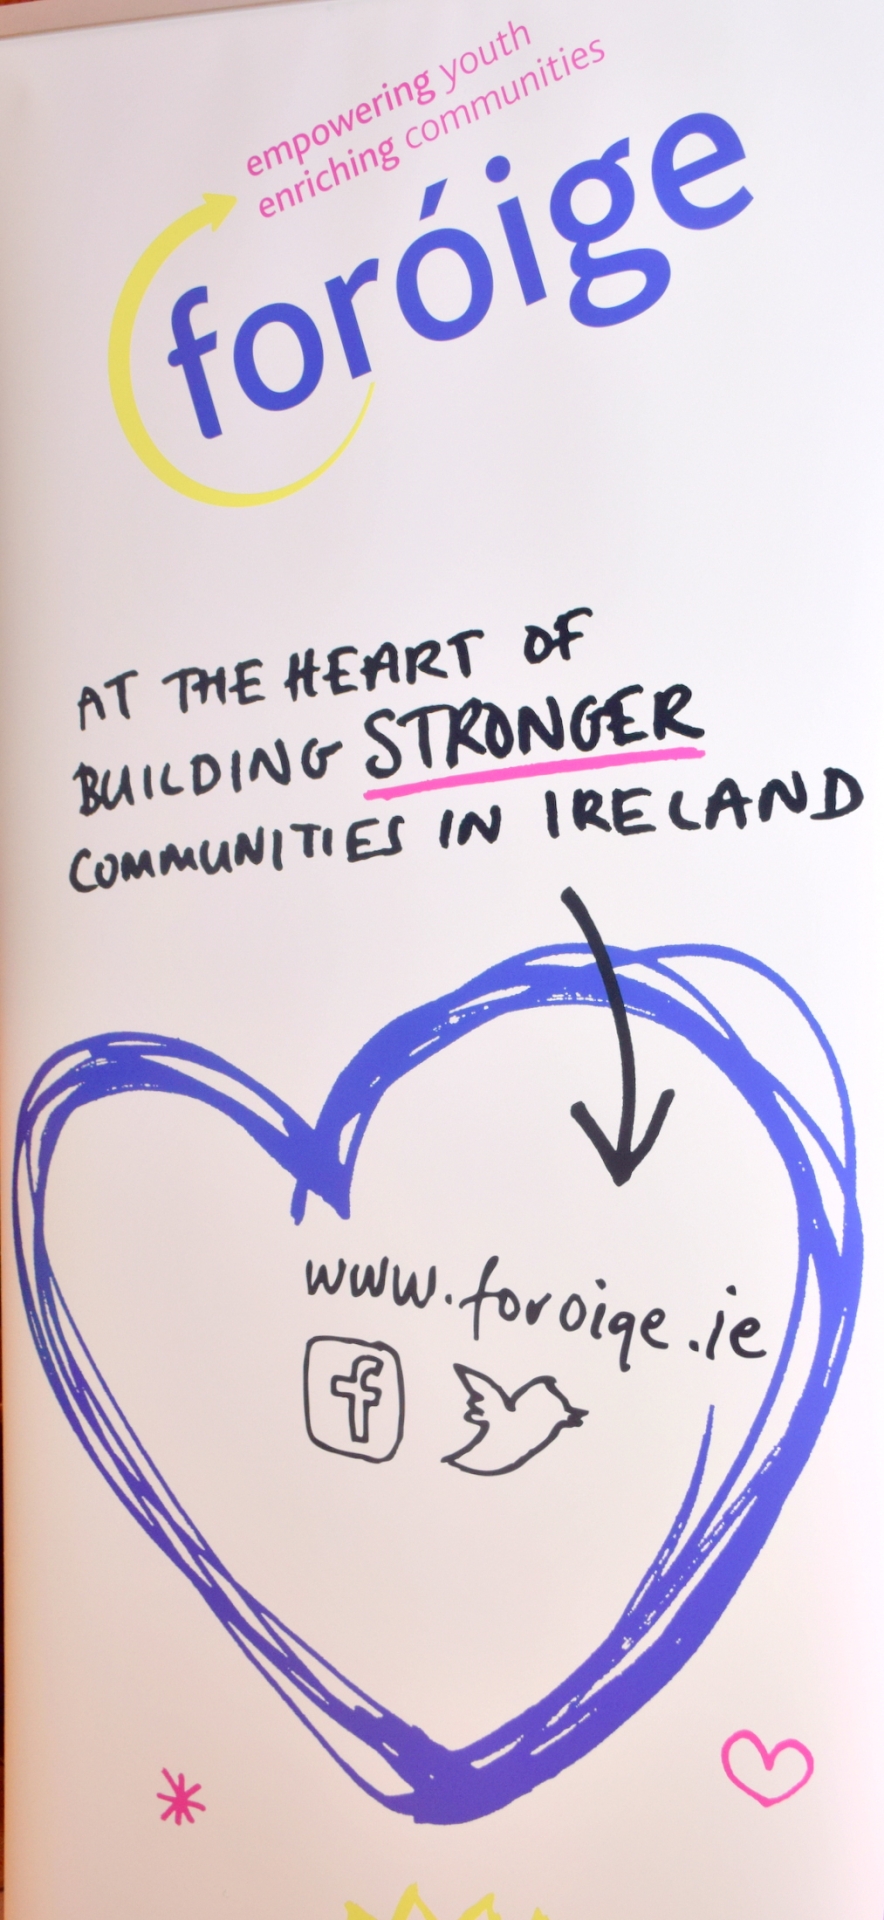 empowering youth
enriching communities
foróige
AT THE HEART OF
BUILDING STRONGER
COMMUNITIES IN IRELAND
www.foroige.ie
f